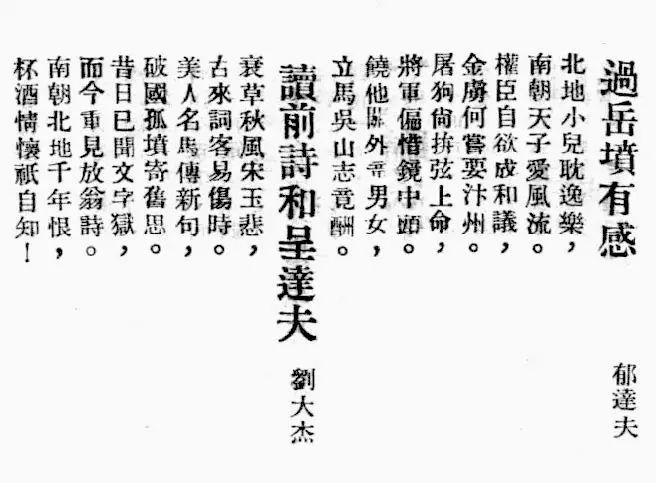 過岳墳有感
郁達夫
北地小兒耽逸樂，
南朝天子愛風流。
權臣自欲成和議，
金虜何嘗要汴州。
屠狗尙拚弦上命，
將軍偏惜鏡中頭。
饒他關外男女，
立馬吳山志竟酬。
讀前詩和呈達夫
劉大杰
衰草秋風宋玉悲，
古來詞客易傷時。
美人名馬傳新句，
破國孤墳寄舊思。
昔日已聞文字獄，
而今重見放翁詩。
南朝北地千年恨，
杯酒情懷祇自知！